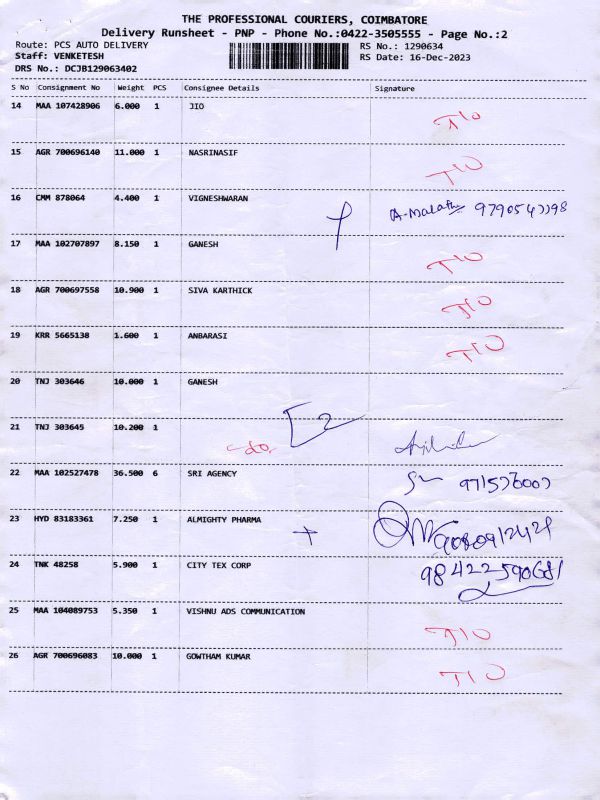 THE PROFESSIONAL COURIERS, COIMBATORE
Delivery Runsheet - PNP - Phone No.:0422-3505555 - Page No.:2
Route: PCS AUTO DELIVERY RS No.: 1290634
Staff: VENKETESH RS Date: 16-Dec-2023
DRS No.: DCJB129063402
S No Consignment No Weight PCS Consignee Details Signature
14 MAA 107428906 6.000 1 JIO
15 AGR 700696140 11.000 1 NASRINASIF
16 CMM 878064 4.400 1 VIGNESHWARAN
17 MAA 102707897 8.150 1 GANESH
18 AGR 700697558 10.900 1 SIVA KARTHICK
19 KRR 5665138 1.600 1 ANBARASI
20 TNJ 303646 10.000 1 GANESH
21 TNJ 303645 10.200 1
-do-
22 MAA 102527478 36.500 6 SRI AGENCY
23 HYD 83183361 7.250 1 ALMIGHTY PHARMA
24 TNK 48258 5.900 1 CITY TEX CORP
25 MAA 104089753 5.350 1 VISHNU ADS COMMUNICATION
26 AGR 700696083 10.000 1 GOWTHAM KUMAR